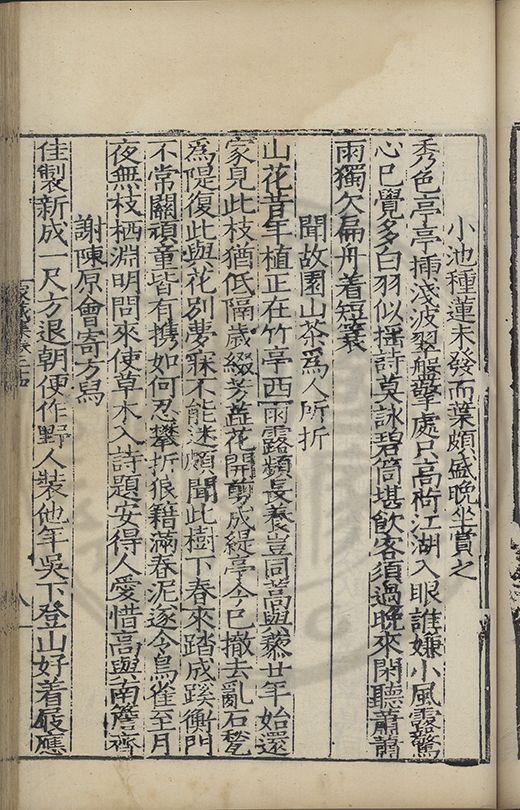 小池種蓮未發而葉頗盛晚坐賞之
秀色亭亭插淺波翠盤擎處只高荷江湖入眼誰嫌小風露驚
心已覺多白羽似搖詩莫詠碧筩堪飲客須過晚來閑聽蕭蕭
雨獨欠扁舟着短蓑
聞故園山茶為人所折
山花昔年植正在竹亭西雨露頻長養豈同蒿與藜廿年始還
家見此枝猶低隔歲綴芳蕋花開剪成緹亭今已撤去亂石甃
為隄復此與花別夢寐不能迷頗聞此樹下春來踏成蹊衡門
不常關頑童皆有携如何忍攀折狼籍滿春泥遂令鳥雀至月
夜無枝栖淵明問來使草木入詩題安得人愛惜高與南簷齊
謝陳原會寄方舄
佳製新成一尺方退朝便作野人裝他年吳下登山好着屐應